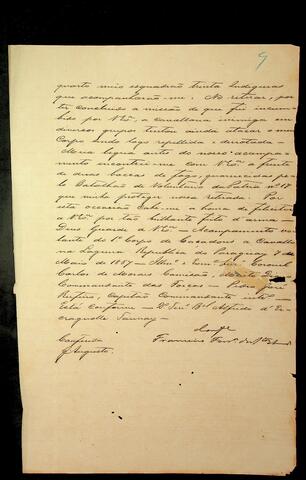 9
quarto mio esquadrão trinta Indigenas
que acompanharão-me. Ao retirar, por
ter concluido a missão de que fui incum-
bido por VExª, a cavallaria inimiga em
diversos grupos tentou ainda atacar o meu
Corpo sendo logo repellida e derrotada.
Meia legua antes do nosso acampa-
mento encontrei-me com VExª a frente
de duas boccas de fogo, guarnecidas pelo
Batalhão de Voluntarios da Patria nº 17
que vinha proteger nossa retirada. Por
esta occasião cabe-me a honra de felicitar
a VExª por tão brilhante feito d'arma —
Deos Guarde a VExª — Acampamento vo-
lante do 1º Corpo de Caçadores a Cavallo
na Laguna Republica do Paraguay 7 de
Maio de 1867 — Illmº e Exmº Snr. Coronel
Carlos de Moraes Camisão, Mui Digno
Commandante das Forças — Pedro José
Rufino, Capitão Commandante intº —
Está conforme — O Tenº Bel Alfredo d'Es-
cragnolle Taunay —
Conferida
Augusto.
Confe
Francisco